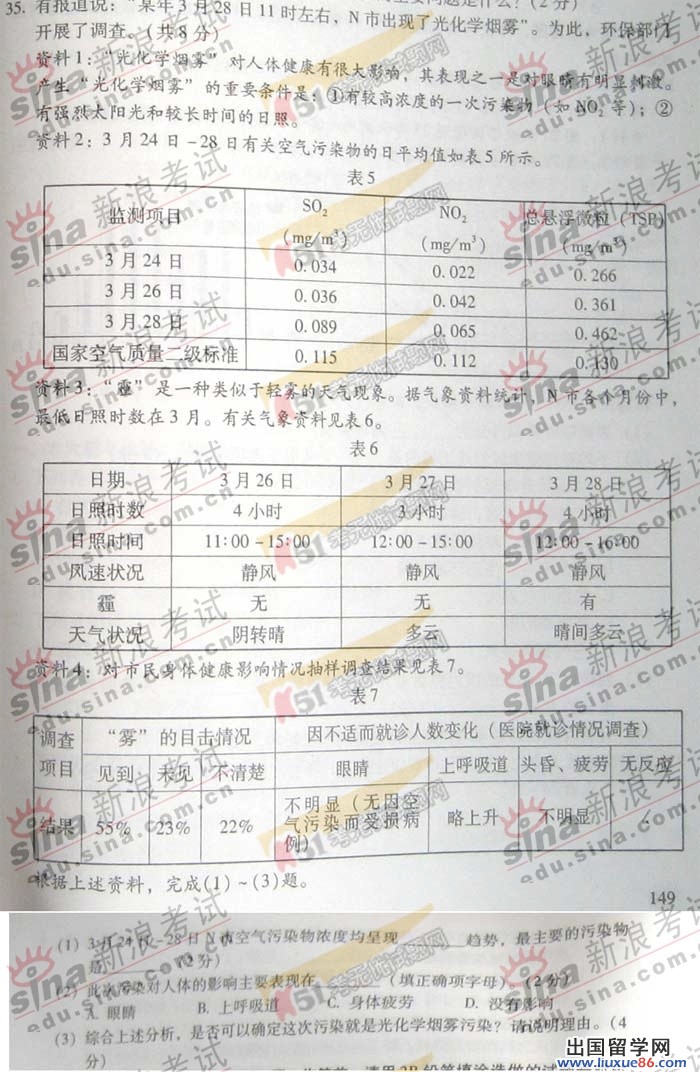 35. 有报道说:“某年3月28日11时左右,N市出现了光化学烟雾”。为此,环保部门
开展了调查。(共8分)
资料1:“光化学烟雾”对人体健康有很大影响,其表现之一是对眼睛有明显刺激。
产生“光化学烟雾”的重要条件是:①有较高浓度的一次污染物(如NO₂等);②
有强烈太阳光和较长时间的日照。
资料2:3月24日-28日有关空气污染物的日平均值如表5所示。
表5
监测项目 SO₂ (mg/m³) NO₂ (mg/m³) 总悬浮微粒(TSP) (mg/m³)
3月24日 0.034 0.022 0.266
3月26日 0.036 0.042 0.361
3月28日 0.089 0.065 0.462
国家空气质量二级标准 0.115 0.112 0.130
资料3:“霾”是一种类似于轻雾的天气现象。据气象资料统计,N市各个月份中,
最低日照时数在3月。有关气象资料见表6。
表6
日期 3月26日 3月27日 3月28日
日照时数 4小时 3小时 4小时
日照时间 11:00-15:00 12:00-15:00 12:00-16:00
风速状况 静风 静风 静风
霾 无 无 有
天气状况 阴转晴 多云 晴间多云
资料4:对市民身体健康影响情况抽样调查结果见表7。
表7
调查项目 “雾”的目击情况 因不适而就诊人数变化(医院就诊情况调查)
见到 未见 不清楚 眼睛 上呼吸道 头昏、疲劳 无反应
结果 55% 23% 22% 不明显(无因空气污染而受损病例) 略上升 不明显
根据上述资料,完成(1)~(3)题。
149
(1) 3月24日-28日N市空气污染物浓度均呈现______趋势,最主要的污染物
是______。(2分)
(2) 此次污染对人体的影响主要表现在______(填正确项字母)。(2分)
A. 眼睛 B. 上呼吸道 C. 身体疲劳 D. 没有影响
(3) 综合上述分析,是否可以确定这次污染就是光化学烟雾污染?请说明理由。(4
分)
新浪考试
sina
edu.sina.com.cn
出国留学网
www.liuxue86.com